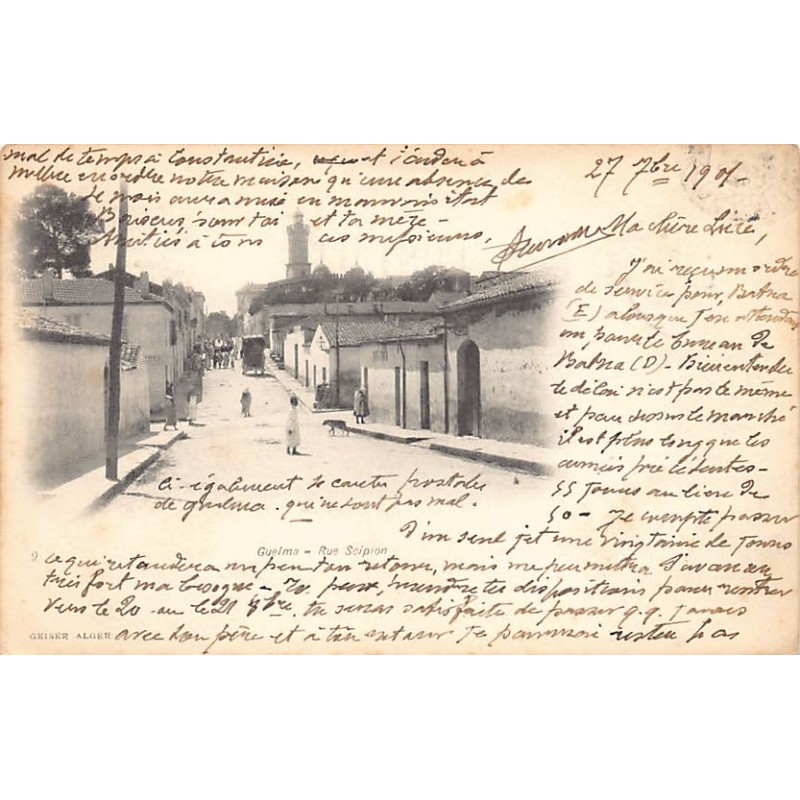 27 7bre 1901-
Ma chère Lucie,
J'ai reçu mon ordre
de service pour Batna
(E) alors que j'en attendais
un pour le bureau de
Batna (D) - Bien entendu
le délai n'est pas le même
et par dessus le marché
il est plus long que les
années précédentes -
55 jours au lieu de
50 - Je compte passer
d'un seul jet une vingtaine de jours
ce qui retardera un peu ton retour, mais me permettra d'avancer
très fort ma besogne - Tu peux prendre tes dispositions pour rentrer
vers le 20 ou le 21 8bre. Tu seras satisfaite de passer q.q. jours
avec ton père et à ton retour je pourrai rester pas
mal de temps à Constantine, et t'aider à
mettre en ordre notre maison qu'une absence de
mois aura mis en mauvais état
Baisers pour toi et ta mère -
Amitiés à tous ces messieurs,
Ci-également 10 cartes postales
de Guelma qui ne sont pas mal.
9
Guelma - Rue Scipion
GEISER ALGER